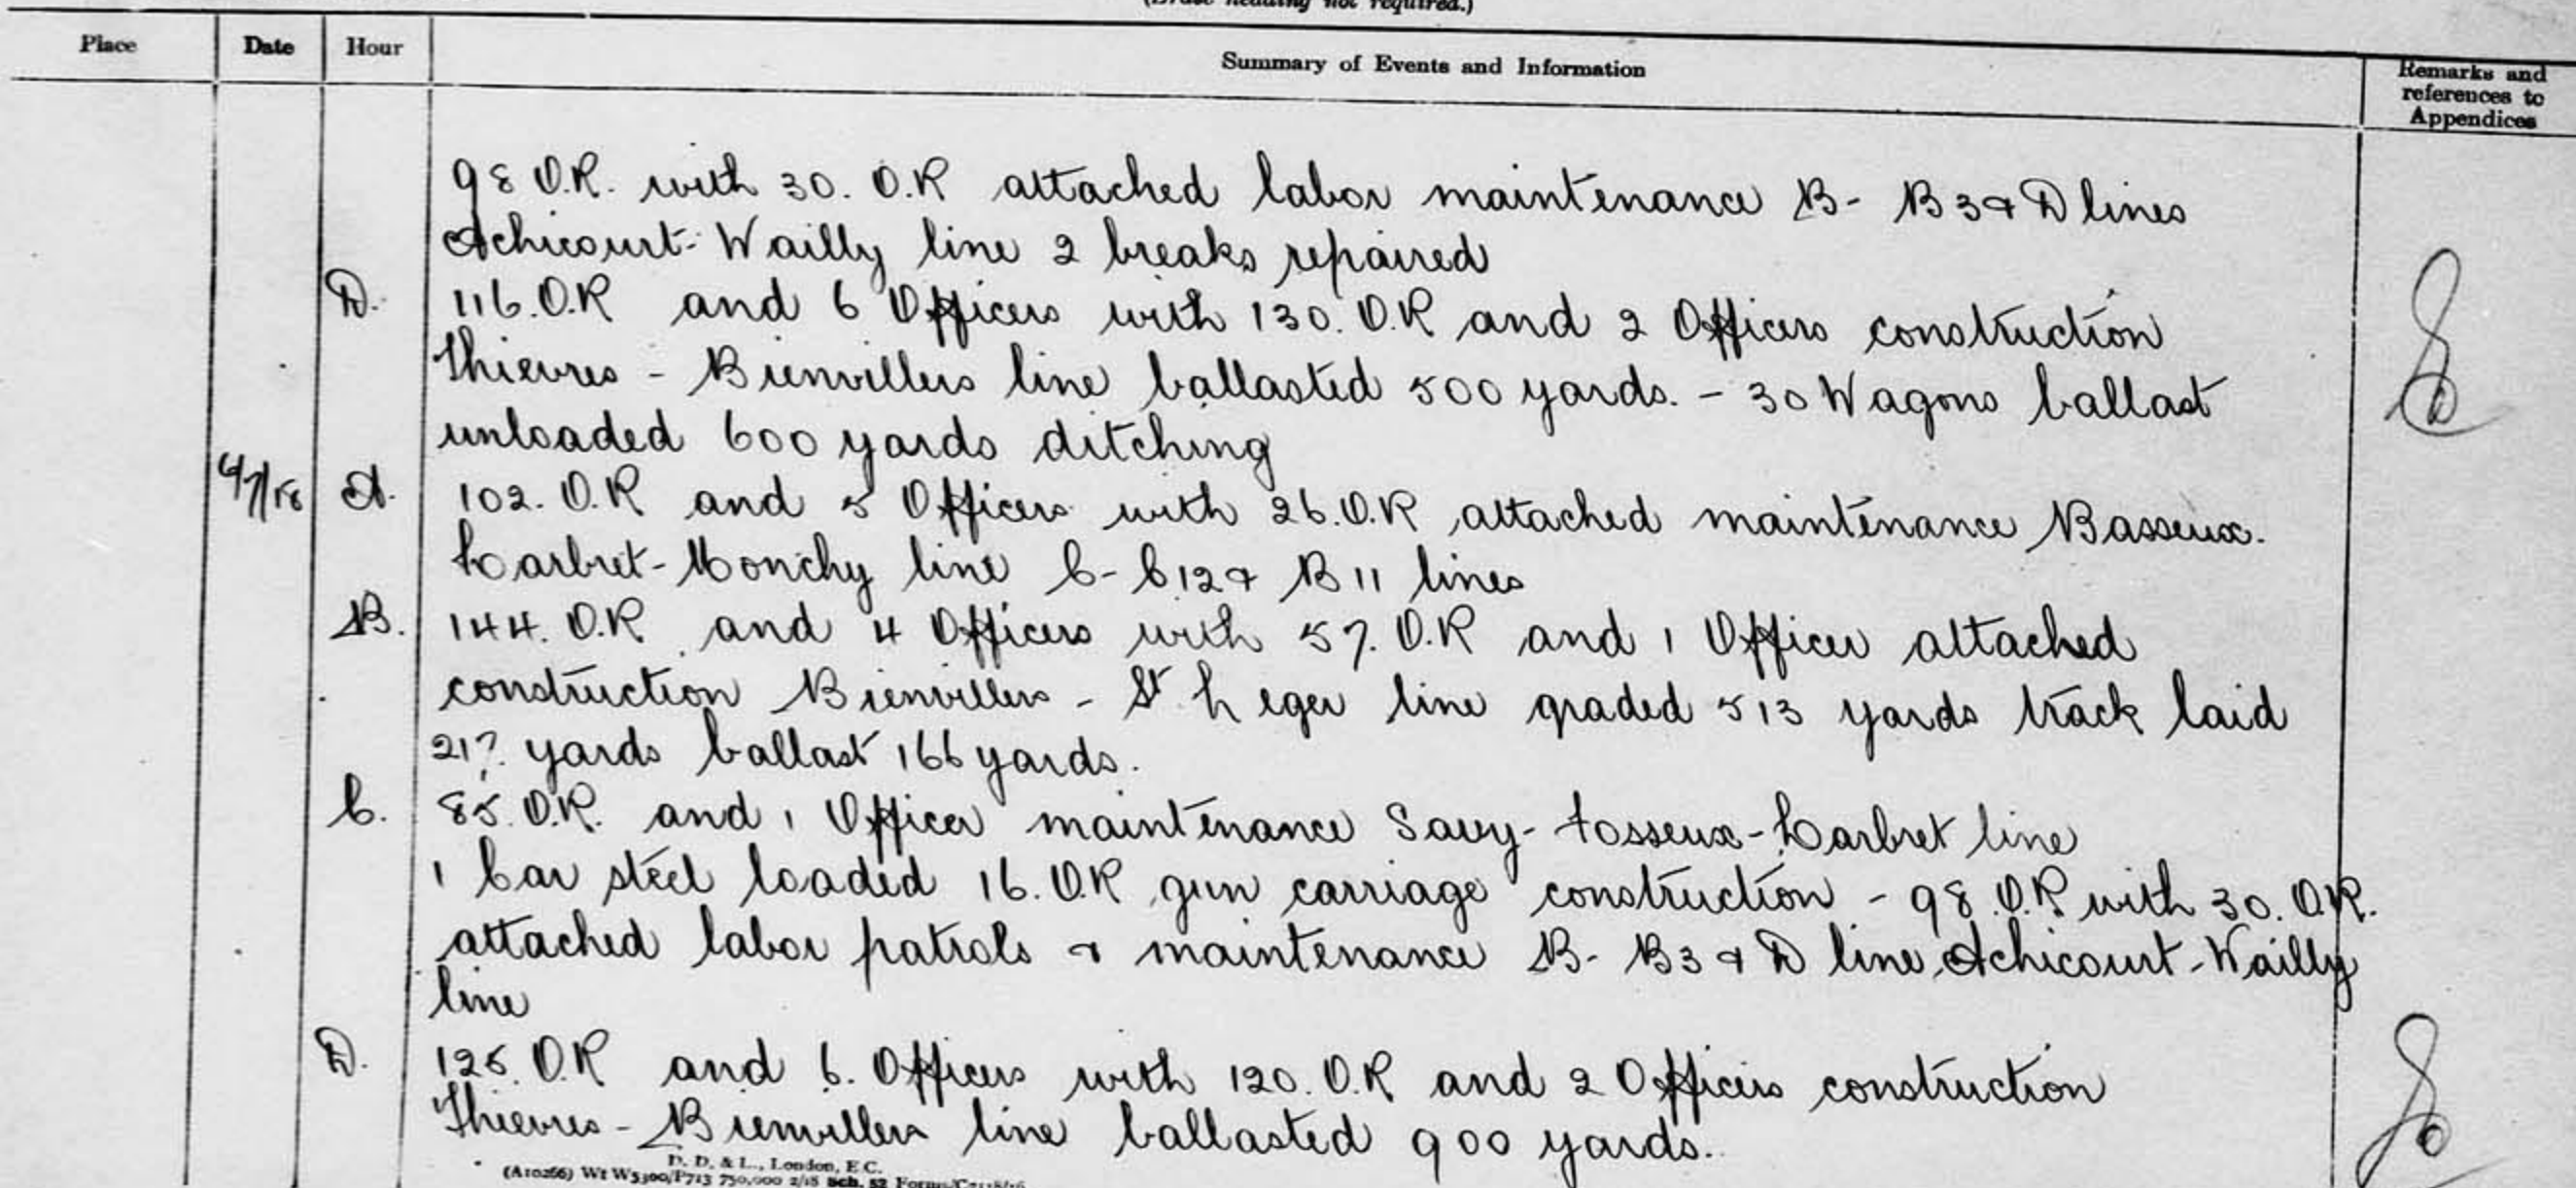 (Erase heading not required.)
Place Date Hour Summary of Events and Information Remarks and references to Appendices
98 O.R. with 30. O.R attached labor maintenance B- B3 & D lines
Achicourt-Wailly line 2 breaks repaired
D. 116. O.R and 6 Officers with 130. O.R and 2 Officers construction
Thievres - Bienvillers line ballasted 500 yards. - 30 Wagons ballast
unloaded 600 yards ditching
A. 102. O.R and 5 Officers with 26. O.R attached maintenance Basseux.
Larbret-Monchy line C- C12 & B11 lines
B. 144. O.R and 4 Officers with 57. O.R and 1 Officer attached
construction Bienvillers - St Leger line graded 513 yards track laid
217 yards ballast 166 yards.
C. 85. O.R. and 1 Officer maintenance Savy-Fosseux-Larbret line
1 Car steel loaded 16. O.R gun carriage construction - 98. O.R with 30. O.R.
attached labor patrols & maintenance B- B3 & D line Achicourt-Wailly
line
D. 125. O.R and 6. Officers with 120. O.R and 2 Officers construction
Thievres - Bienvillers line ballasted 900 yards.
D. D. & L., London, E.C.
(A10266) Wt W5300/P713 750,000 2/18 Sch. 52